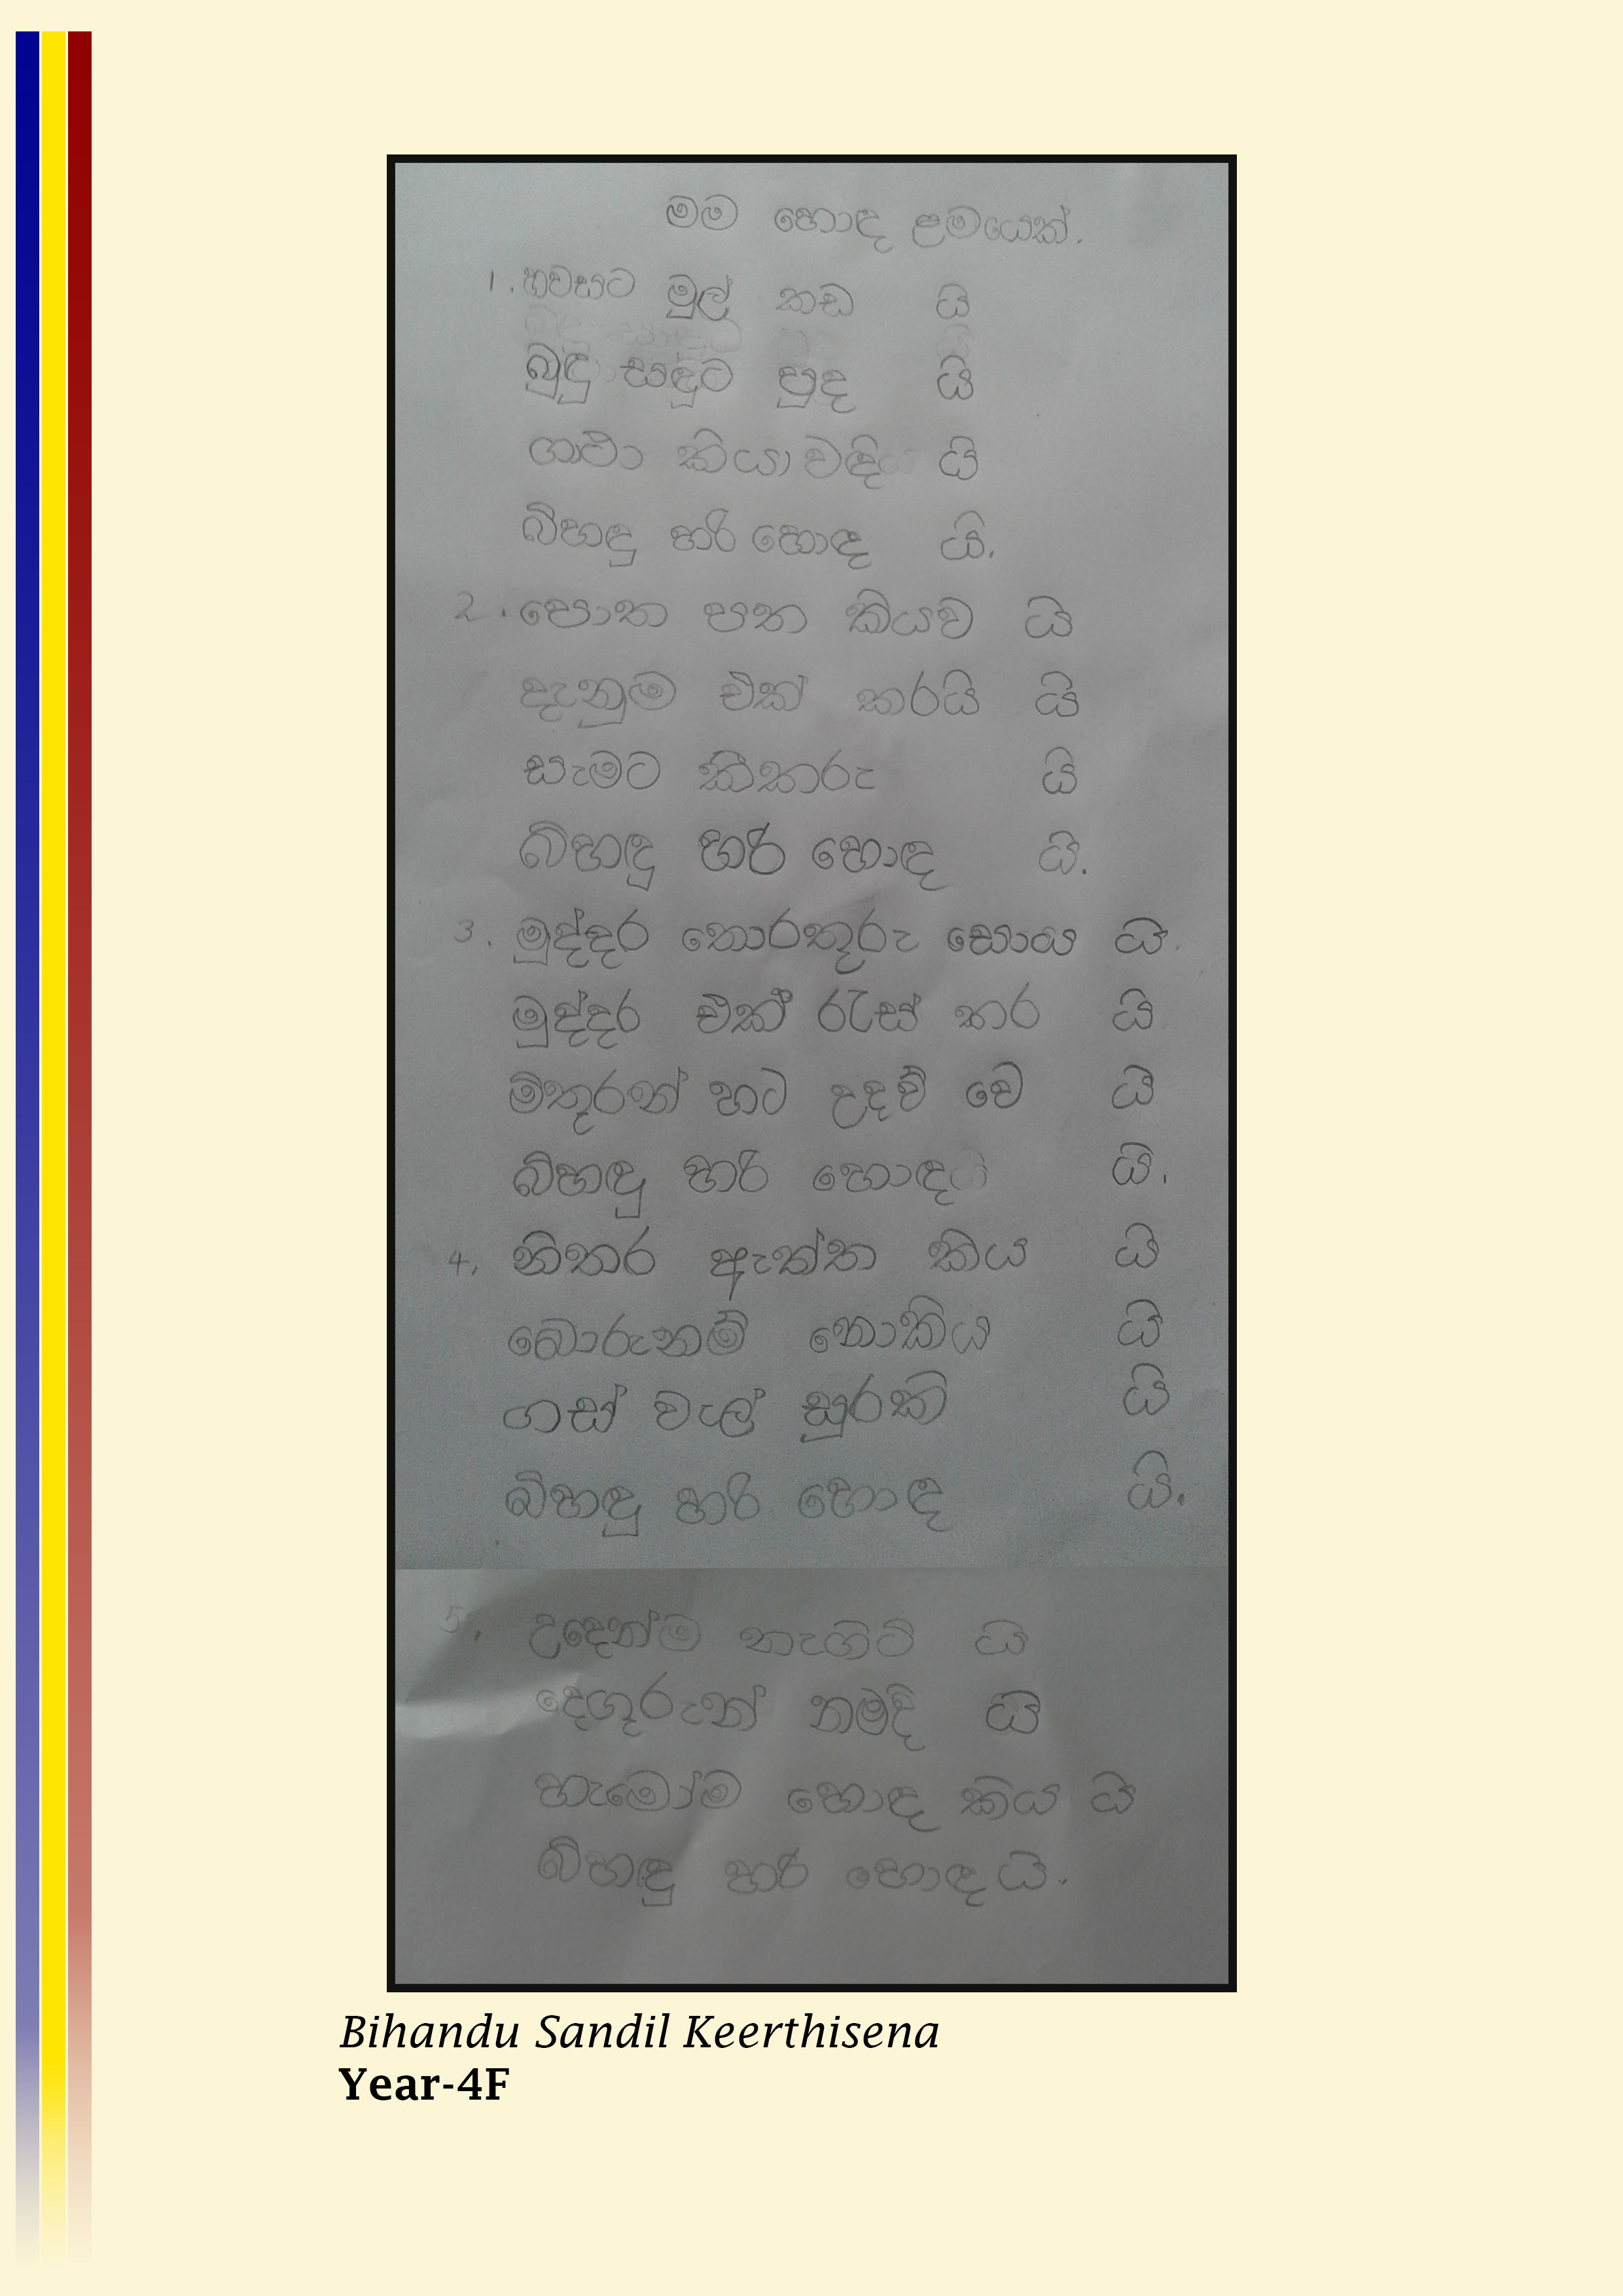 මම හොඳ ළමයෙක්.
1. හවසට මුල් කඩ යි
බුඳු සඳුට පුද යි
ගාථා කියා වඳියි
බිහඳු හරි හොඳ යි.
2. පොත පත කියව යි
දැනුම එක් කරයි යි
සැමට කීකරු යි
බිහඳු හරි හොඳ යි.
3. මුද්දර තොරතුරු සොය යි.
මුද්දර එක් රැස් කර යි
මිතුරන් හට උදව් වෙ යි
බිහඳු හරි හොඳ යි.
4. නිතර ඇත්ත කිය යි
බොරුනම් නොකිය යි
ගස් වැල් සුරකි යි
බිහඳු හරි හොඳ යි.
5. උදෙන්ම නැගිටි යි
දෙගුරුන් නමදි යි
හැමෝම හොඳ කිය යි
බිහඳු හරි හොඳ යි.
Bihandu Sandil Keerthisena
Year-4F